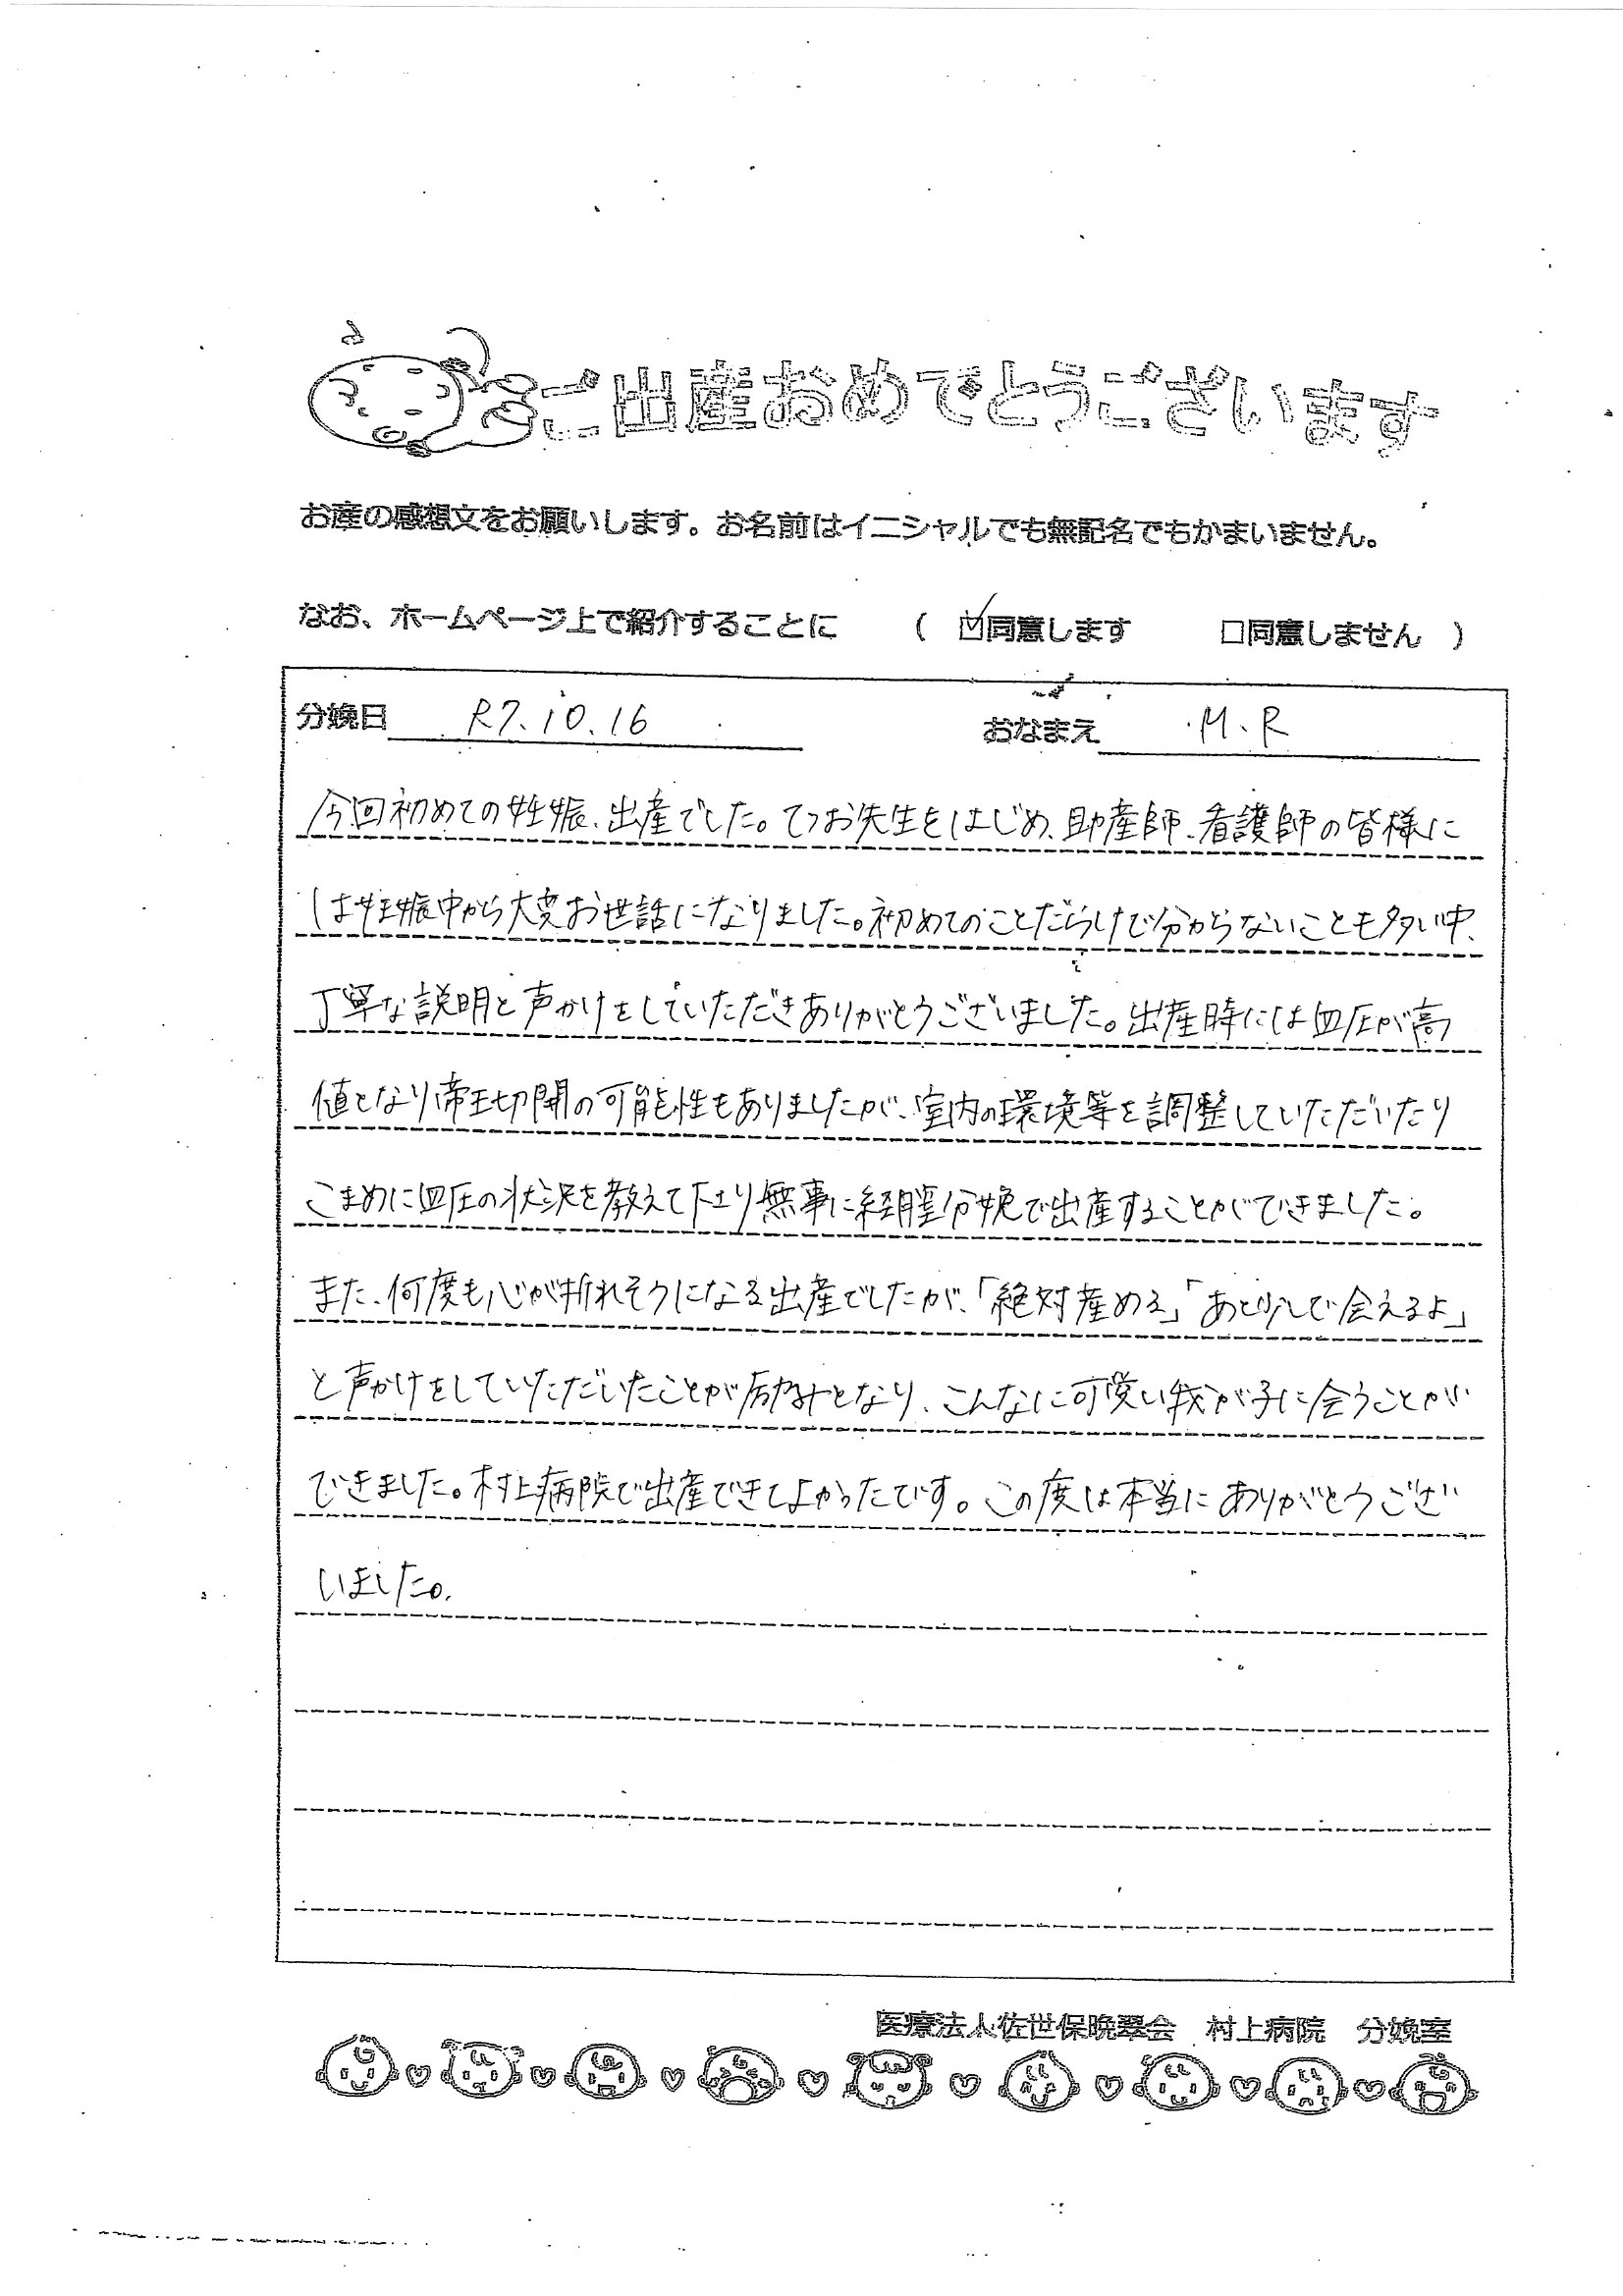 ご出産おめでとうございます
お産の感想文をお願いします。お名前はイニシャルでも無記名でもかまいません。
なお、ホームページ上で紹介することに （ ☑同意します □同意しません ）
分娩日 R7.10.16 おなまえ M.R
今回初めての妊娠、出産でした。てつお先生をはじめ、助産師、看護師の皆様に
は妊娠中から大変お世話になりました。初めてのことだらけで分からないことも多い中、
丁寧な説明と声かけをしていただきありがとうございました。出産時には血圧が高
値となり帝王切開の可能性もありましたが、室内の環境等を調整していただいたり
こまめに血圧の状況を教えて下さり無事に経膣分娩で出産することができました。
また、何度も心が折れそうになる出産でしたが、「絶対産める」「あと少しで会えるよ」
と声かけをしていただいたことが励みとなり、こんなに可愛い我が子に会うことが
できました。村上病院で出産できてよかったです。この度は本当にありがとうござ
いました。
医療法人佐世保晩翠会 村上病院 分娩室